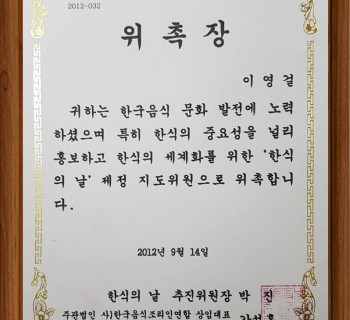 2012-032
위 촉 장
이 영 걸
귀하는 한국음식 문화 발전에 노력
하셨으며 특히 한식의 중요성을 널리
홍보하고 한식의 세계화를 위한 '한식
의 날' 제정 지도위원으로 위촉합니
다.
2012년 9월 14일
한식의 날 추진위원장 박 진
주관법인 사)한국음식조리인연합 상임대표